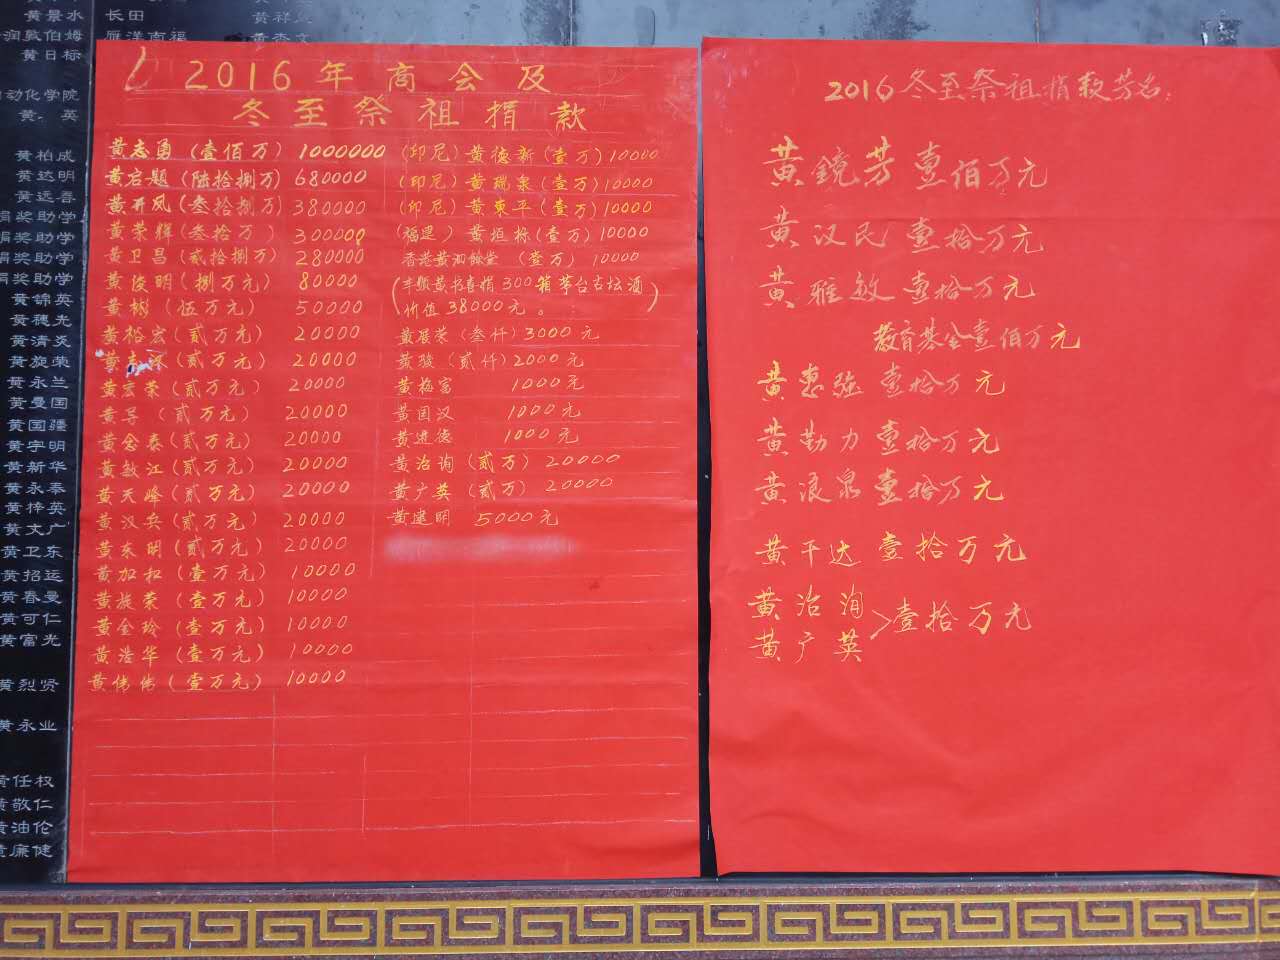 黄景水
长田
润敦伯姆
雁洋南福
黄日标
动化学院
黄 英
黄柏成
黄达明
黄远香
捐奖助学
捐奖助学
捐奖助学
捐奖助学
黄锦英
黄穗光
黄清炎
黄旋荣
黄永兰
黄曼国
黄国疆
黄宇明
黄新华
黄永泰
黄梓英
黄文广
黄卫东
黄招运
黄春曼
黄可仁
黄富光
黄烈贤
黄永业
黄任权
黄敬仁
黄油伦
黄廉健
2016年商会及
冬至祭祖捐款
黄志勇(壹佰万) 1000000
黄启题(陆拾捌万) 680000
黄开凤(叁拾捌万) 380000
黄荣辉(叁拾万) 300000
黄卫昌(贰拾捌万) 280000
黄俊明(捌万元) 80000
黄彬(伍万元) 50000
黄裕宏(贰万元) 20000
黄 (贰万元) 20000
黄宏荣(贰万元) 20000
黄导(贰万元) 20000
黄念泰(贰万元) 20000
黄敏江(贰万元) 20000
黄天峰(贰万元) 20000
黄汉兵(贰万元) 20000
黄东明(贰万元) 20000
黄加和(壹万元) 10000
黄旋荣(壹万元) 10000
黄金玲(壹万元) 10000
黄浩华(壹万元) 10000
黄伟伟(壹万元) 10000
(印尼)黄德新(壹万)10000
(印尼)黄瑞泉(壹万)10000
(印尼)黄东平(壹万)10000
(福建)黄垣标(壹万)10000
香港黄泗馀堂(壹万) 10000
(黄书喜捐300箱茅台古坛酒
价值38000元。)
黄展荣(叁仟)3000元
黄骏(贰仟)2000元
黄梅富 1000元
黄国汉 1000元
黄进德 1000元
黄治询(贰万) 20000
黄广英(贰万) 20000
黄建明 5000元
2016冬至祭祖捐款芳名:
黄镜芳 壹佰万元
黄汉民 壹拾万元
黄雅敏 壹拾万元
教育基金壹佰万元
黄惠强 壹拾万元
黄勤力 壹拾万元
黄浪泉 壹拾万元
黄干达 壹拾万元
黄治询
黄广英 >壹拾万元